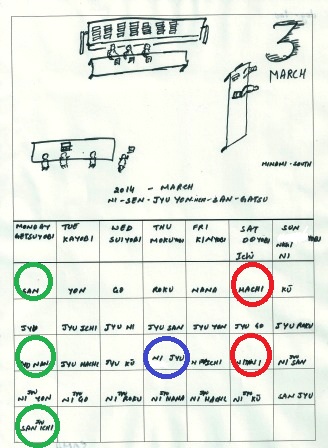 3
MARCH
MINAMI - SOUTH
2014 - MARCH
NI-SEN-JYU YON-NEN-SAN-GATSU
MONDAY TUE WED THU FRI SAT SUN
GETSUYOBI KAYOBI SUIYOBI MOKUYOBI KINYOBI DOYOBI
ICHI NI
SAN YON GO ROKU NANA HACHI KŪ
JYU JYU ICHI JYU NI JYU SAN JYU YON JYU GO JYU ROKU
JYU HACHI JYU KŪ NI JYU JYU
NANI NI SAN
JYU JYU JYU JYU JYU JYU
NI YON NI GO NI ROKU NI NANA NI HACHI NI KŪ SAN JYU
JYU
SAN ICHI